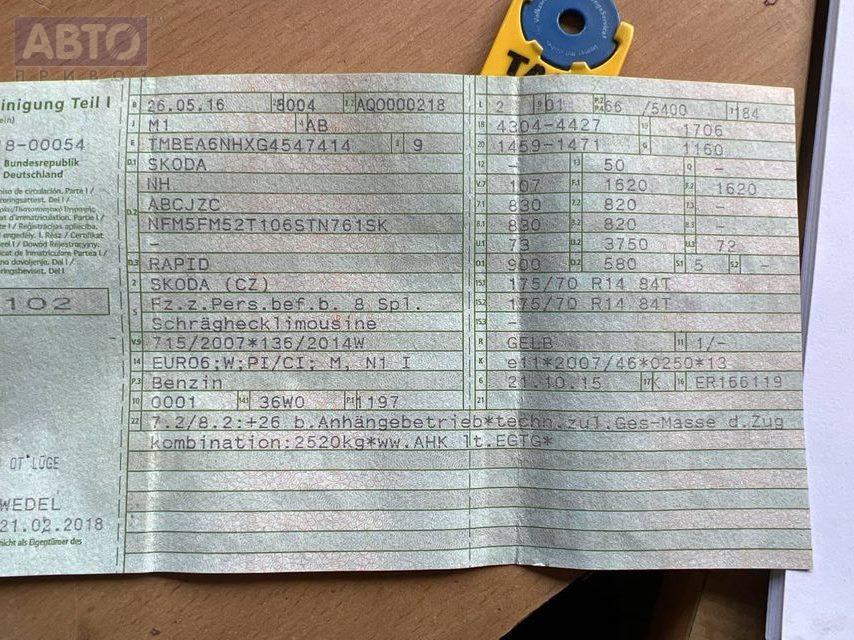 АВТО
ПРИВОЗ
TA
einigung Teil I
ein)
8-00054
Bundesrepublik
Deutschland
102
OT LÜGE
WEDEL
21.02.2018
nicht als Eigentümer des
B 26.05.16 8004 AQ0000218
J M1 4 AB
E TMBEA6NHXG4547414 3 9
D.1 SKODA
NH
D.2 ABCJZC
NFM5FM52T106STN761SK
-
D.3 RAPID
2 SKODA (CZ)
5 Fz.z.Pers.bef.b. 8 Spl.
Schräghecklimousine
V.9 715/2007*136/2014W
14 EURO6;W;PI/CI; M, N1 I
P.3 Benzin
10 0001 14.1 36W0 P.1 1197
22 7.2/8.2:+26 b.Anhängebetrieb*techn.zul.Ges-Masse d.Zug
kombination:2520kg*ww.AHK lt.EGTG*
L 2 9 01 P.2 P.4 66 /5400 T 184
18 4304-4427 19 1706
20 1459-1471 G 1160
12 - 13 50 Q -
V.7 107 F.1 1620 F.2 1620
7.1 830 7.2 820 7.3 -
8.1 830 8.2 820 8.3 -
U.1 73 U.2 3750 U.3 72
O.1 900 O.2 580 S.1 5 S.2 -
15.1 175/70 R14 84T
15.2 175/70 R14 84T
15.3 -
R GELB 11 1/-
K e11*2007/46*0250*13
6 21.10.15 17 K 16 ER166119
21